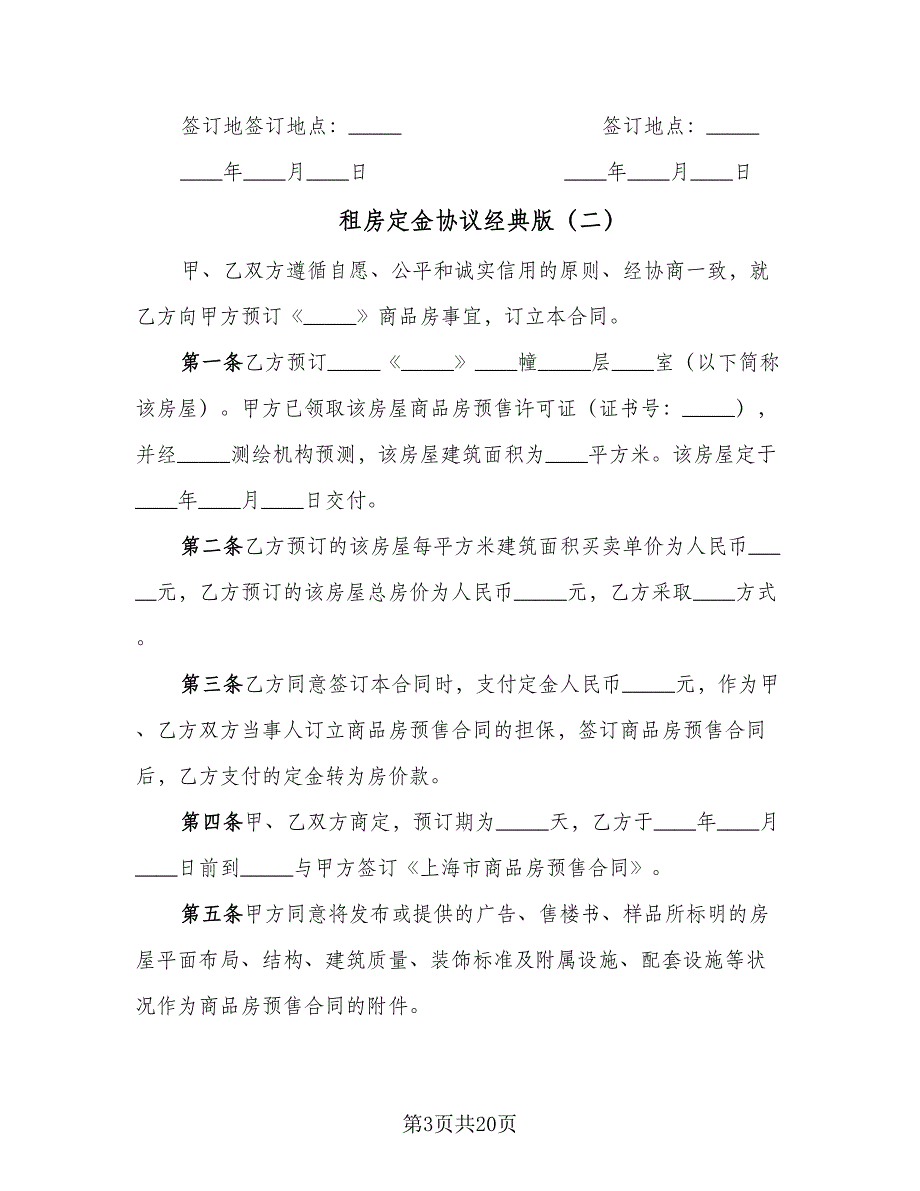 签订地签订地点：_____ 签订地点：_____
____年____月____日 ____年____月____日
租房定金协议经典版（二）
甲、乙双方遵循自愿、公平和诚实信用的原则、经协商一致，就
乙方向甲方预订《_____》商品房事宜，订立本合同。
第一条乙方预订_____《_____》____幢_____层____室（以下简称
该房屋）。甲方已领取该房屋商品房预售许可证（证书号：_____），
并经_____测绘机构预测，该房屋建筑面积为____平方米。该房屋定于
____年____月____日交付。
第二条乙方预订的该房屋每平方米建筑面积买卖单价为人民币___
__元，乙方预订的该房屋总房价为人民币_____元，乙方采取____方式
。
第三条乙方同意签订本合同时，支付定金人民币_____元，作为甲
、乙方双方当事人订立商品房预售合同的担保，签订商品房预售合同
后，乙方支付的定金转为房价款。
第四条甲、乙双方商定，预订期为_____天，乙方于____年____月
____日前到_____与甲方签订《上海市商品房预售合同》。
第五条甲方同意将发布或提供的广告、售楼书、样品所标明的房
屋平面布局、结构、建筑质量、装饰标准及附属设施、配套设施等状
况作为商品房预售合同的附件。
第3页共20页